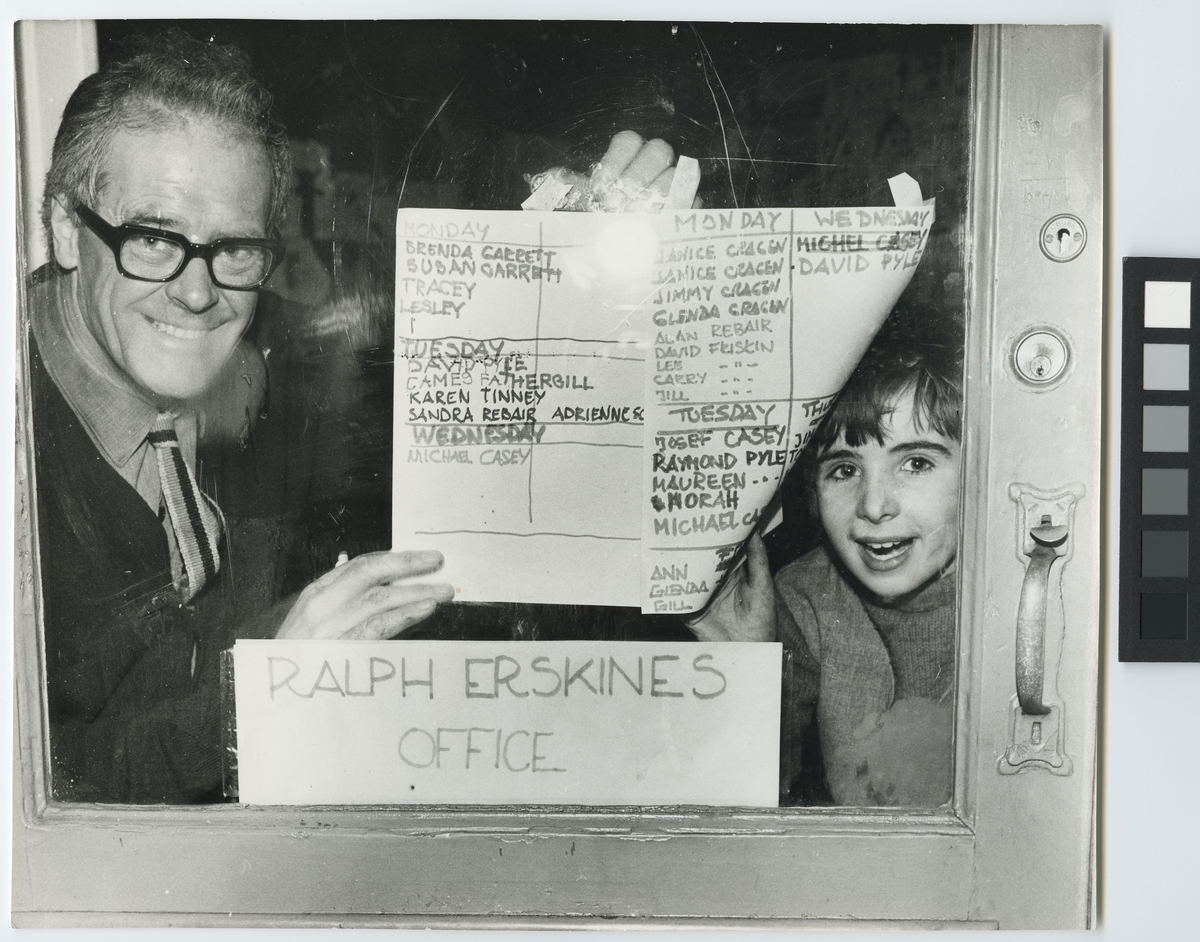 MONDAY
BRENDA GARRETT
SUSAN GARRETT
TRACEY
LESLEY
TUESDAY
DAVID PYLE
JAMES FATHERGILL
KAREN TINNEY
SANDRA REBAIR ADRIENNE
WEDNESDAY
MICHAEL CASEY
MONDAY
JANICE CRAGEN
JANICE CRAGEN
JIMMY CRAGEN
GLENDA CRAGEN
ALAN REBAIR
DAVID FRISKIN
LEE - - -
CARRY - - -
JILL - - -
TUESDAY
JOSEF CASEY
RAYMOND PYLE
MAUREEN - - -
& NORAH
MICHAEL CA
ANN
GLENDA
GILL
WEDNESDAY
MICHEL CASEY
DAVID PYLE
THU
RALPH ERSKINES
OFFICE